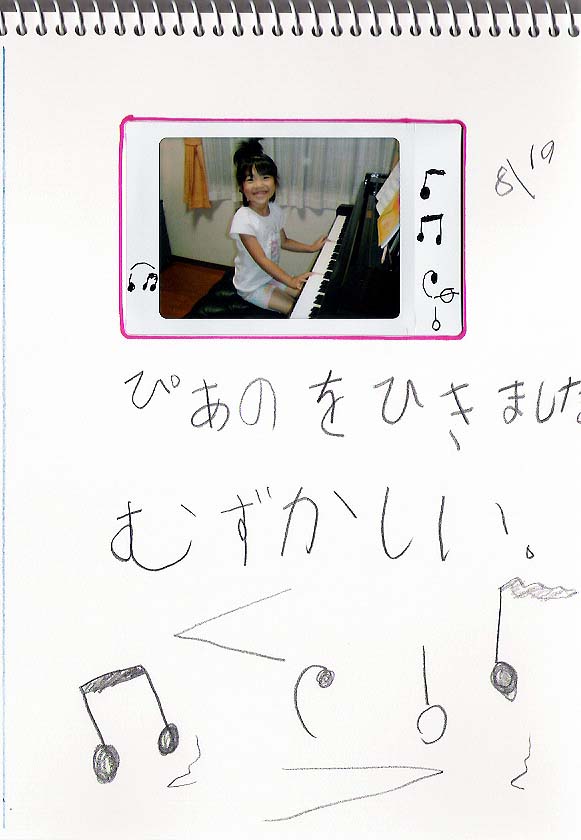 8/19
ぴあのをひきました
むずかしい。